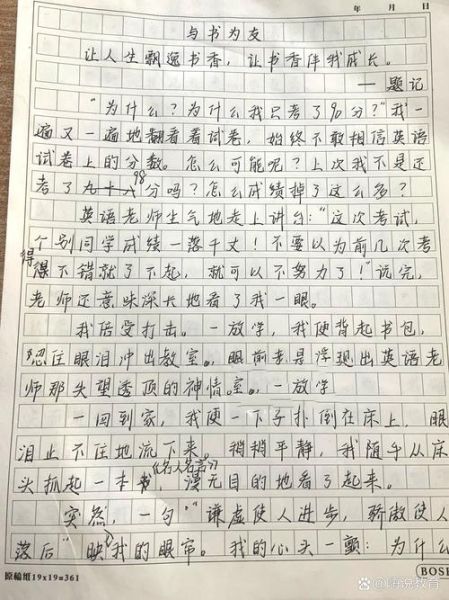 年 月 日
与书为友
让人生飘逸书香，让书香伴我成长。
——题记
“为什么？为什么我只考了90分？”我一
遍又一遍地翻看着试卷，始终不敢相信英语
试卷上的分数。怎么可能呢？上次我不是还
考了98分吗？怎么成绩掉了这么多？
英语老师生气地走上讲台：“这次考试，
个别同学成绩一落千丈！不要以为前几次考
得不错就了不起，就可以不努力了！”说完，
老师还意味深长地看了我一眼。
我倍受打击。一放学，我便背起书包，
忍住眼泪冲出教室。眼前老是浮现出英语老
师那失望透顶的神情。
一回到家，我便一下子扑倒在床上，眼
泪止不住地流下来。稍稍平静，我随手从床
头抓起一本《名人名言》，漫无目的地看了起来。
突然，一句“谦虚使人进步，骄傲使人
落后”映入我的眼帘。我的心头一颤：为什么
原稿纸19x19=361